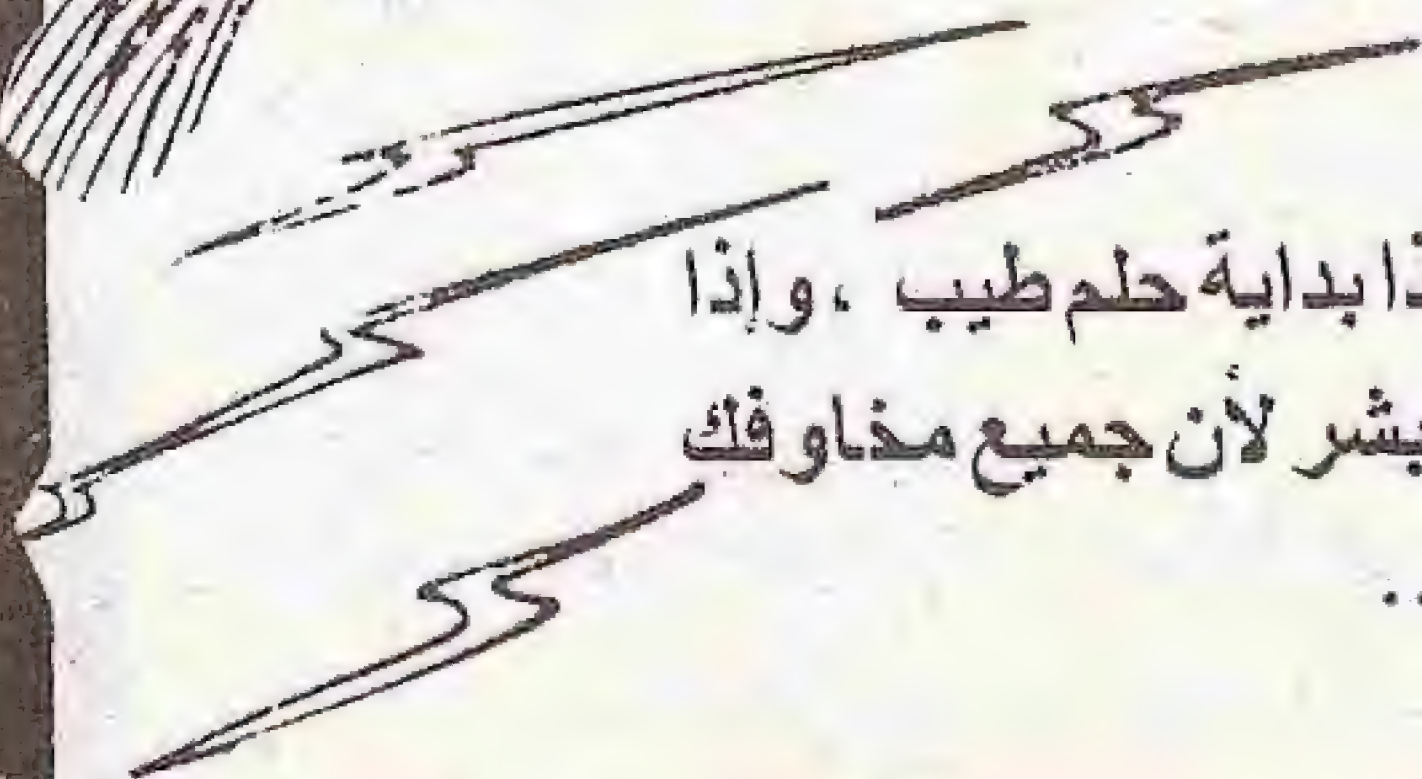 بداية حلم طيب ، وإذا
لأن جميع مخاوفك
..